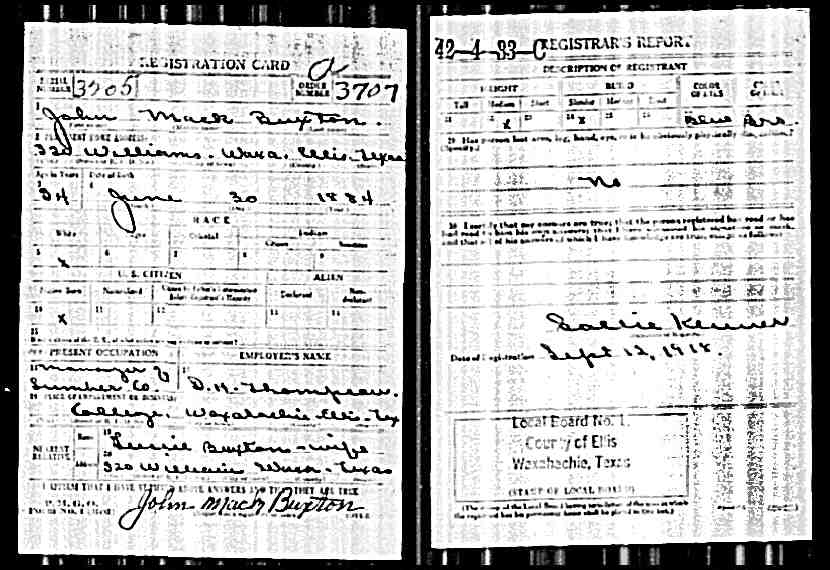 REGISTRATION CARD
SERIAL NUMBER 3505 ORDER NUMBER 3707
John Mack Buxton
320 Williams. Waxa. Ellis. Texas
Age in Years Date of Birth
34 June 30 1884
RACE
White Oriental Indian
Citizen
5 x 6 7 8 9
U. S. CITIZEN ALIEN
Native Born Naturalized Declarant Non-declarant
10 x 11 12 13 14
15
PRESENT OCCUPATION EMPLOYER'S NAME
Manager of
Lumber Co. D. H. Thompson.
College. Waxahachie. Ellis. Tex
NEAREST RELATIVE Name Buxton - wife
Address 20 320 William Waxa - Texas
I AFFIRM THAT I HAVE VERIFIED ABOVE ANSWERS AND THAT THEY ARE TRUE
P. M. G. O.
John Mack Buxton
42-4-33-C REGISTRAR'S REPORT
DESCRIPTION OF REGISTRANT
HEIGHT BUILD COLOR OF EYES
Tall Medium Short Slender Medium Stout
x x Blue Bro.
29 Has person lost arm, leg, hand, eye, or is he obviously physically disqualified?
(Specify.)
No
30 I certify that my answers are true; that the person registered has read or has
had read to him his own answers; that I have witnessed his signature or mark,
and that all of his answers of which I have knowledge are true, except as follows:
Sallie
Date of Registration Sept 12, 1918.
Local Board No. 1,
County of Ellis
Waxahachie, Texas
(STAMP OF LOCAL BOARD)
(The stamp of the Local Board having jurisdiction of the area in which
the registrant has his permanent home shall be placed in this box.)